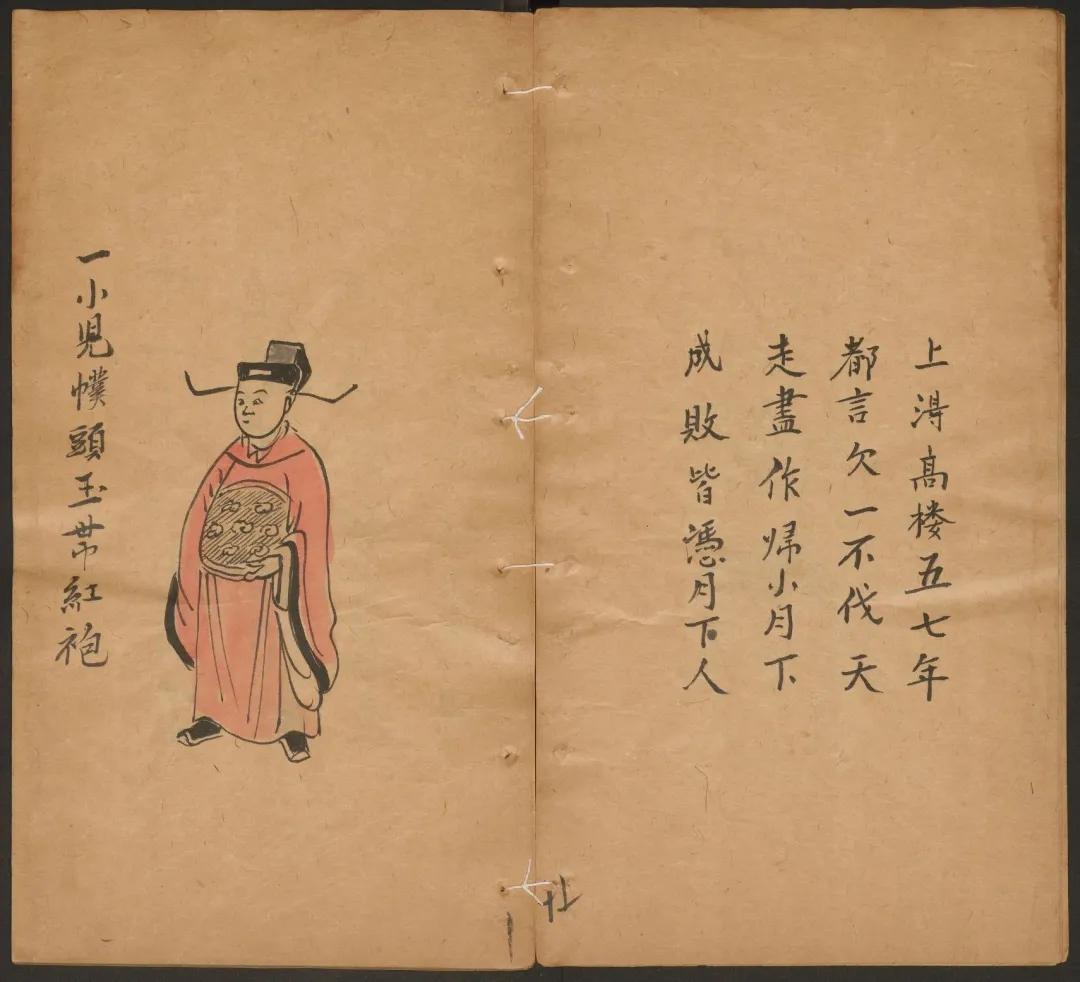 上淂高楼五七年
都言欠一不伐天
走盡作帰小月下
成敗皆憑月下人
一小児幞頭玉帯紅袍